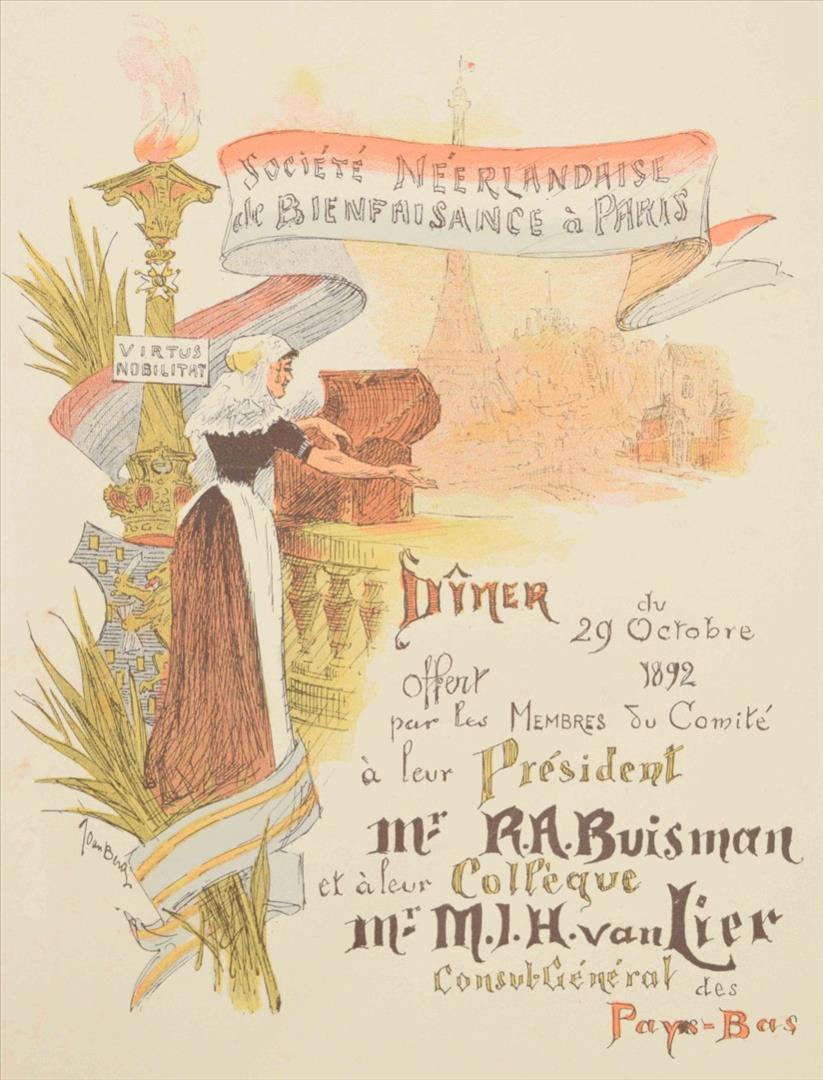 Société Néerlandaise
de Bienfaisance à Paris
VIRTUS
NOBILITAT
Dîner du
29 Octobre
1892
offert
par les Membres du Comité
à leur Président
Mr R.A. Buisman
et à leur Collègue
Mr M.J.H. van Lier
Consul-Général des
Pays-Bas